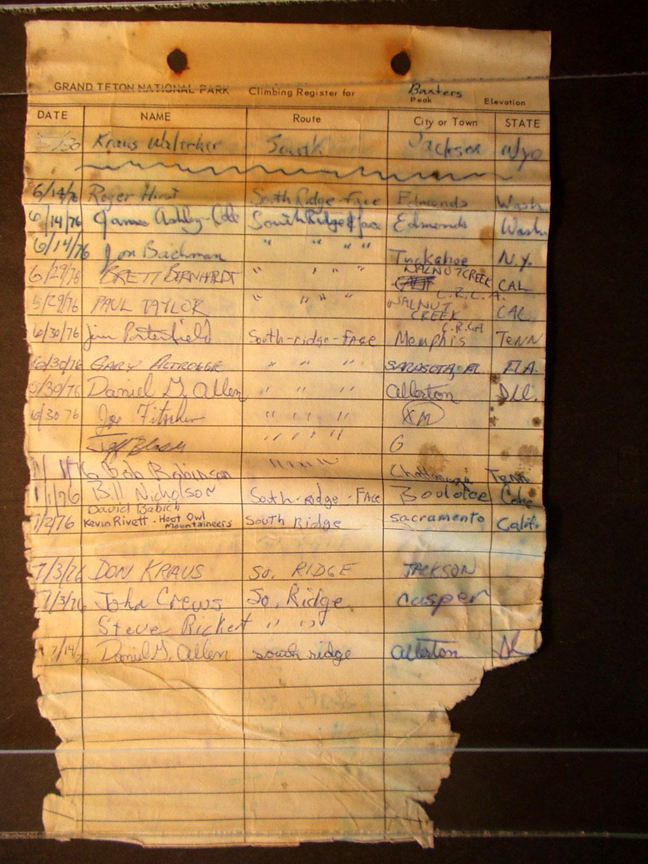 GRAND TETON NATIONAL PARK Climbing Register for Baxters
Peak Elevation
DATE NAME Route City or Town STATE
/30 Kraus Walter South Jackson Wyo
6/14/76 Roger Hirst South Ridge-Face Edmonds Wash.
6/14/76 James Ashley-Cole South Ridge Face Edmonds Wash.
6/14/76 Jon Bachman " " " Tuckahoe N.Y.
6/29/76 BRETT BERNHARDT " " " WALNUT CREEK CAL
5/29/76 PAUL TAYLOR " " " WALNUT CREEK CAL
6/30/76 Jim Porterfield South-ridge-Face Memphis TENN
6/30/76 GARY " " " SARASOTA, FL FLA
6/30/76 Daniel G. Allen " " " Allerton Ill.
6/30/76 Joe " " " XM
Jeff " " " " G
Bob Robinson " " " " Tenn
1/76 Bill Nicholson South-ridge-Face Boulder Colo
David Babich
7/2/76 Kevin Rivett - Hoot Owl Mountaineers South Ridge Sacramento Calif
7/3/76 DON KRAUS SO. RIDGE JACKSON
7/3/76 John Crews So. Ridge Casper
Steve Rickert " "
Daniel G. Allen south ridge Allerton